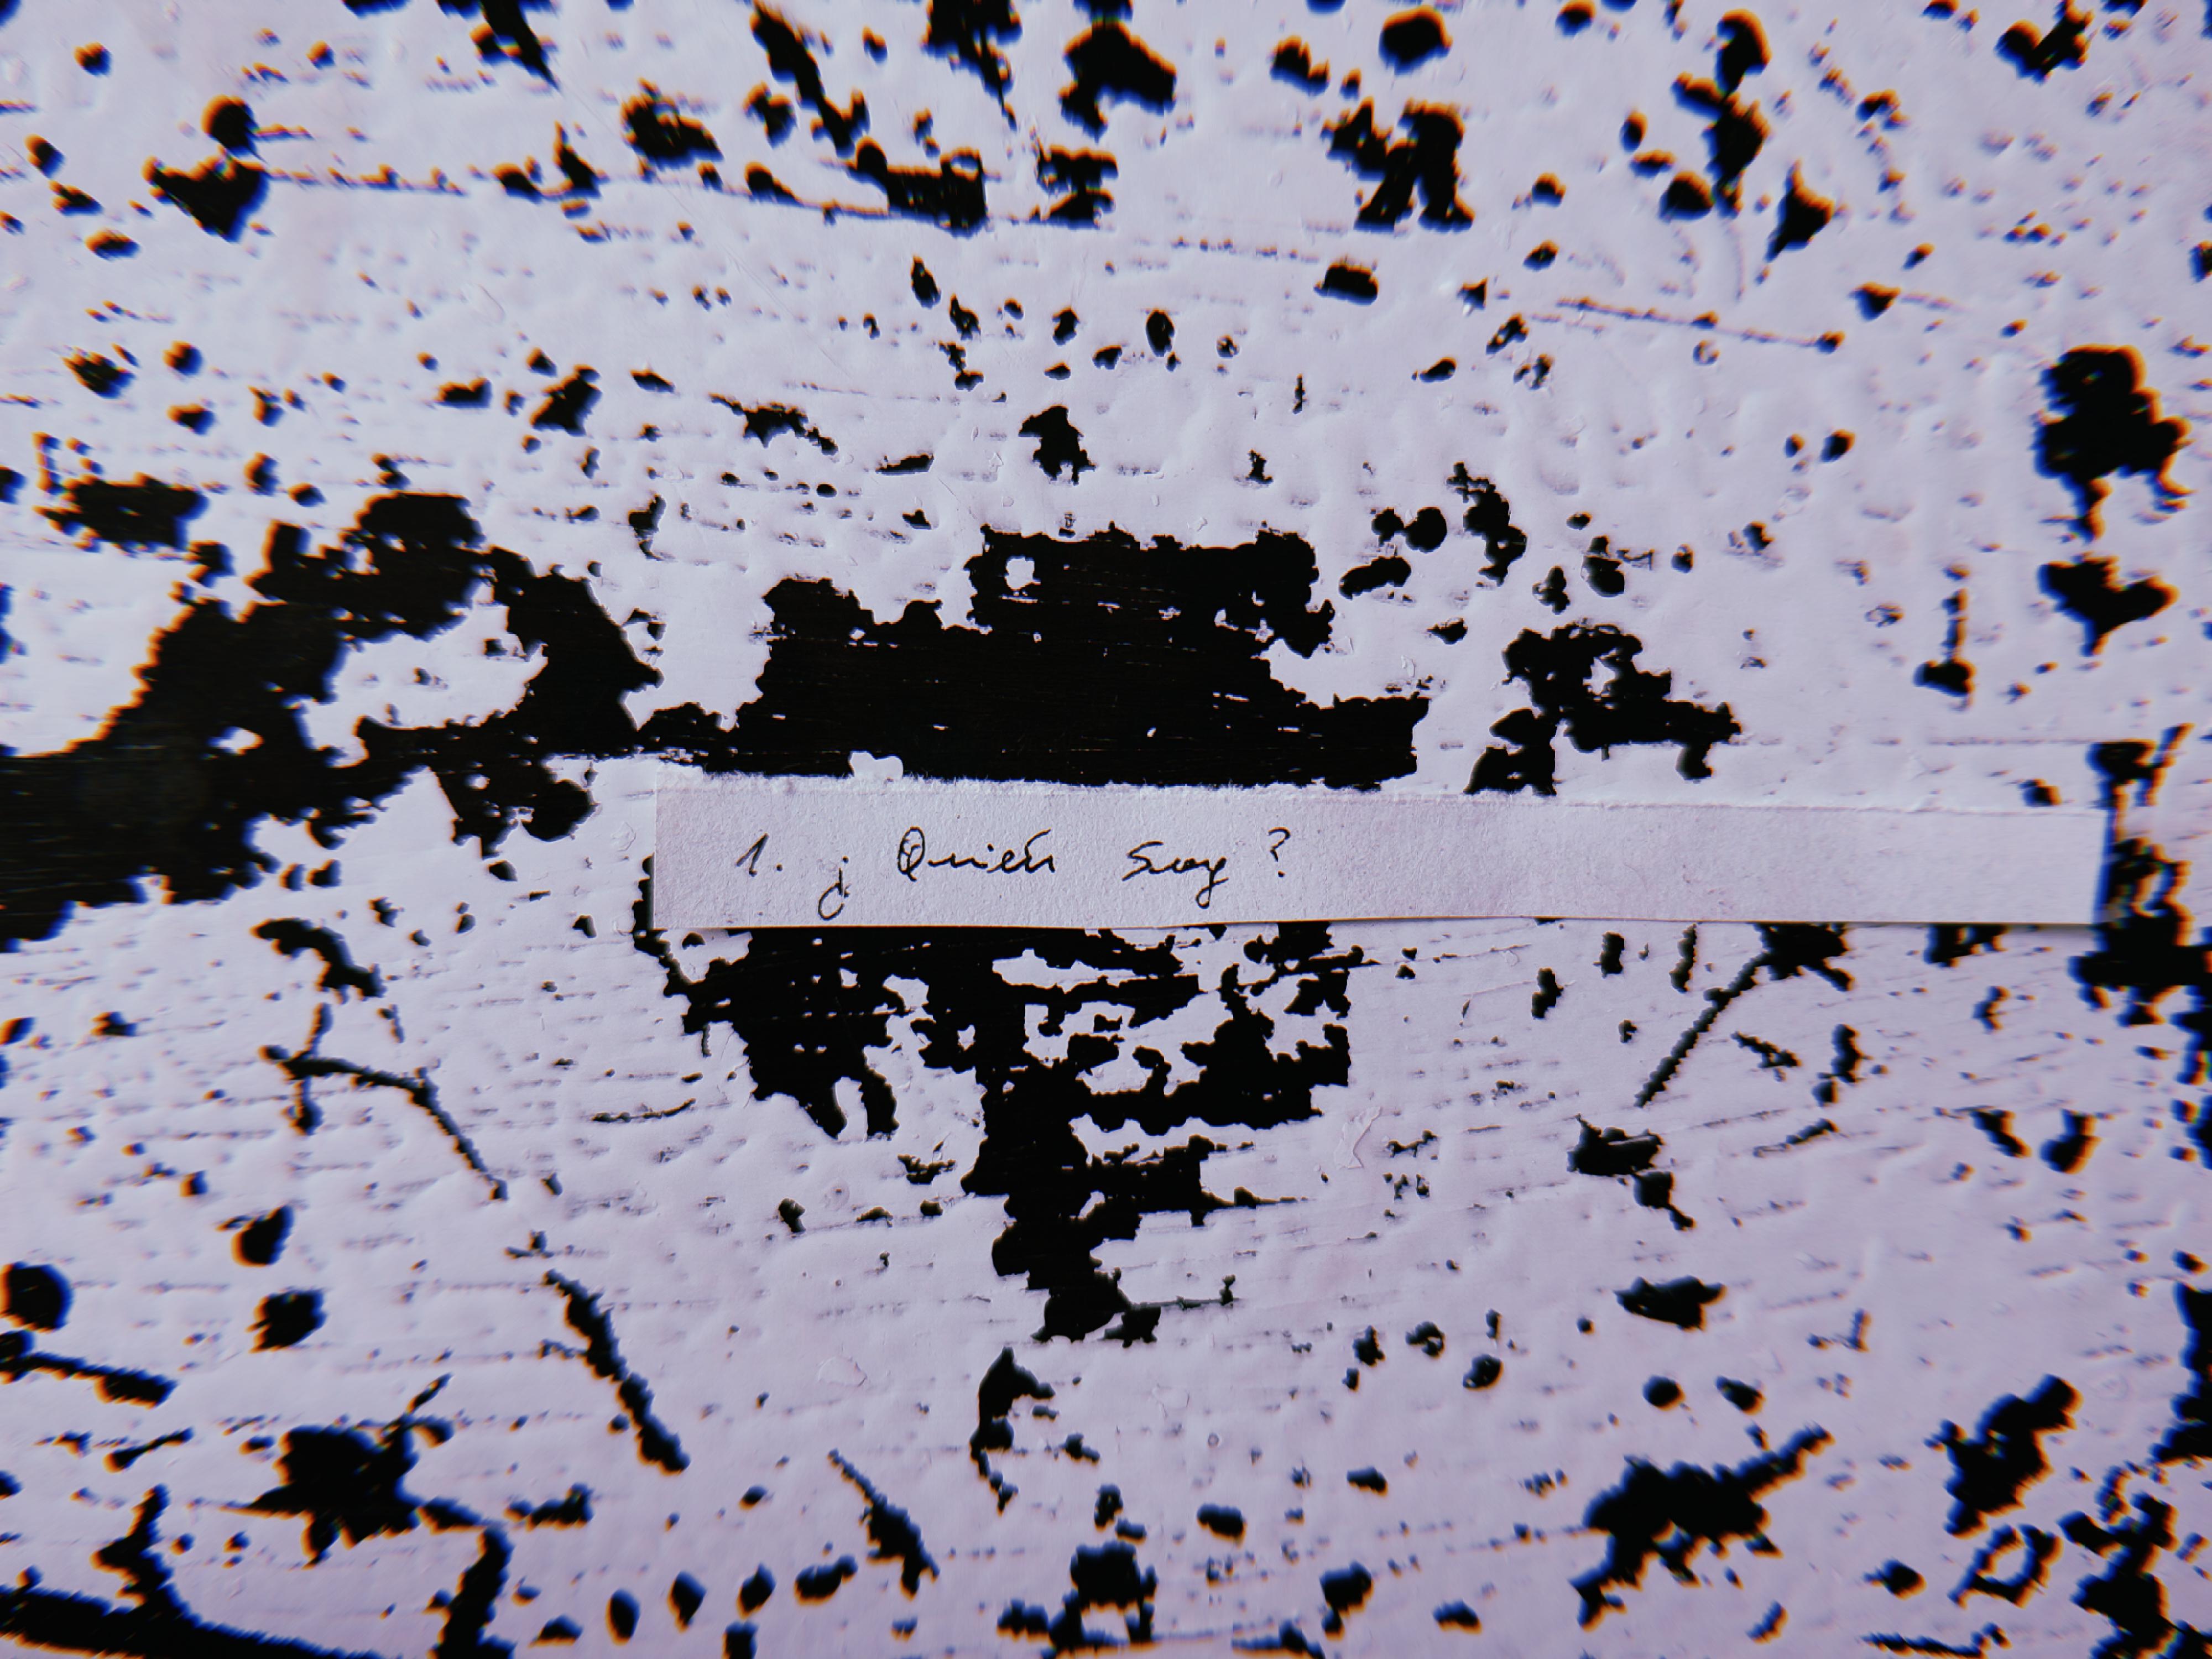 1. ¿Quién soy?